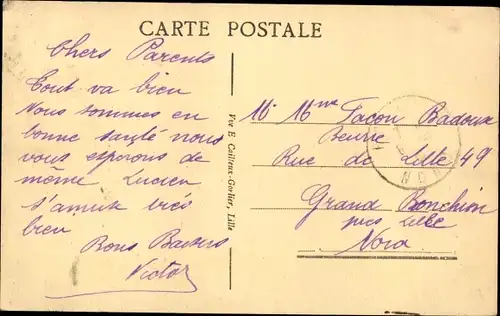 CARTE POSTALE
Chers Parents
Tout va bien
Nous sommes en
bonne santé nous
vous esperons de
même Lucien
s'amuse très
bien
Bons Baisers
Victor
Vve E. Cailteux-Gorlier, Lille
Mr Mme Facon Badoux
Beurre
Rue de Lille 49
Grand Ronchin
près Lille
Nord